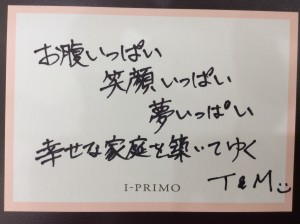 お腹いっぱい
笑顔いっぱい
夢いっぱい
幸せな家庭を築いてゆく
T&M
I-PRIMO